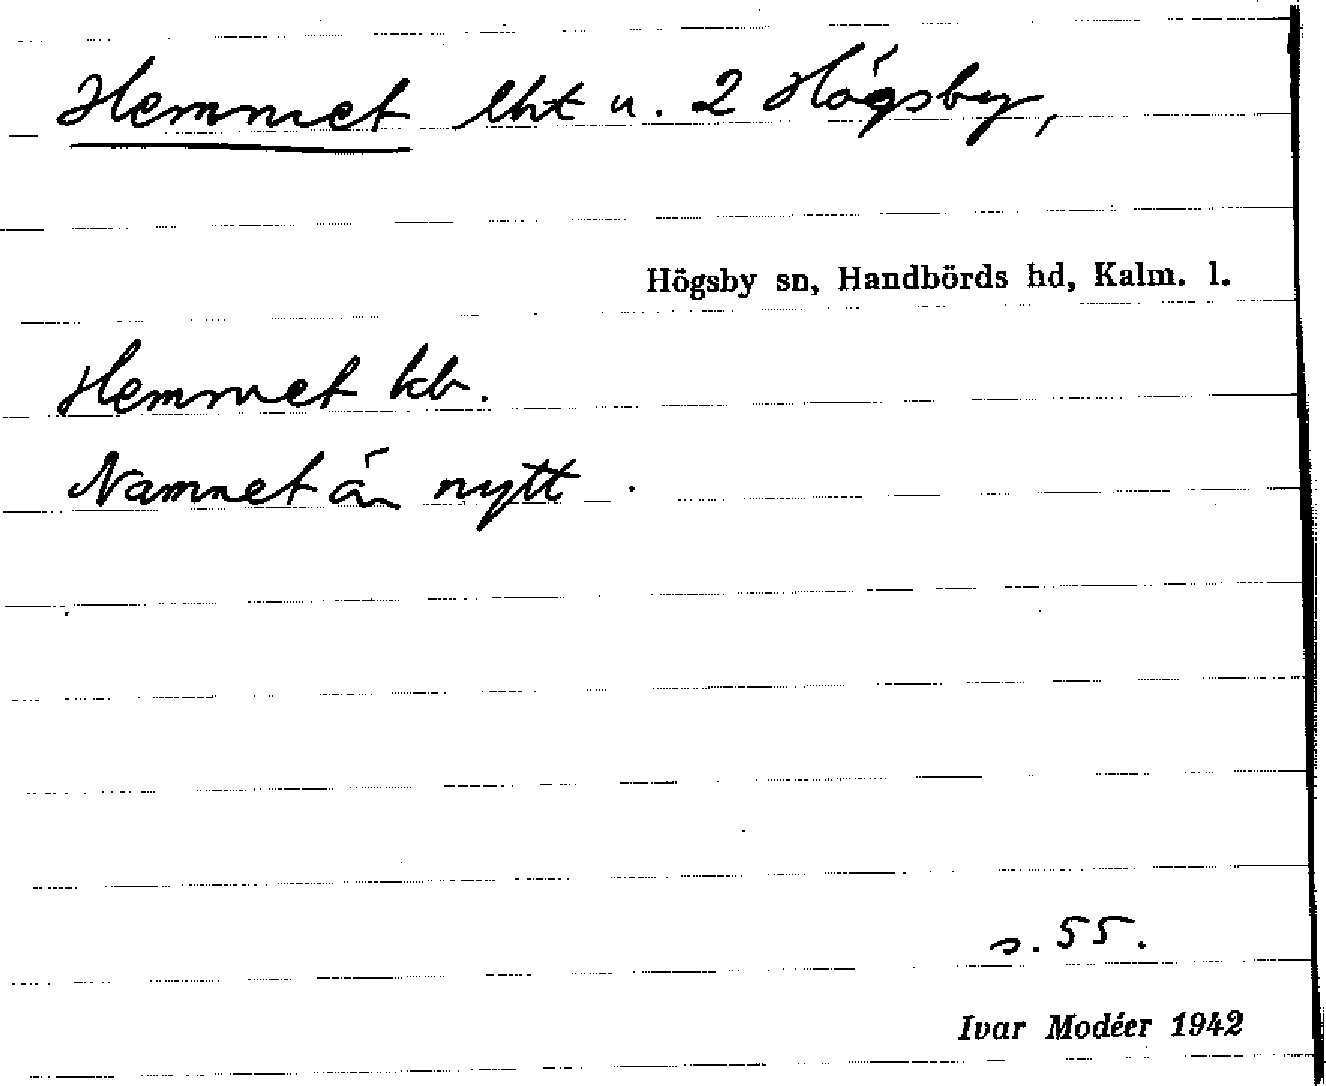 Hemmet lht u. 2 Högsby,
Högsby sn, Handbörds hd, Kalm. l.
Hemmet kb.
Namnet är nytt.
s. 55.
Ivar Modéer 1942